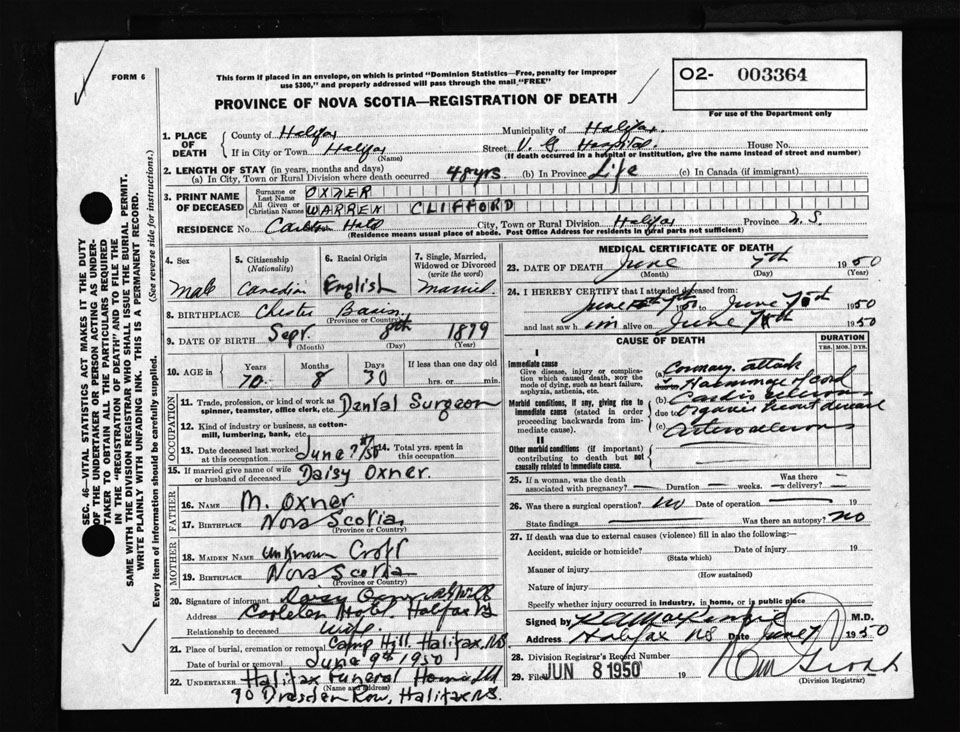 FORM 6
This form if placed in an envelope, on which is printed "Dominion Statistics—Free, penalty for improper
use $300," and properly addressed will pass through the mail "FREE"
O2- 003364
For use of the Department only
PROVINCE OF NOVA SCOTIA—REGISTRATION OF DEATH
SEC. 46—VITAL STATISTICS ACT MAKES IT THE DUTY
OF THE UNDERTAKER OR PERSON ACTING AS UNDER-
TAKER TO OBTAIN ALL THE PARTICULARS REQUIRED
IN THE "REGISTRATION OF DEATH" AND TO FILE THE
SAME WITH THE DIVISION REGISTRAR WHO SHALL ISSUE THE BURIAL PERMIT.
WRITE PLAINLY WITH UNFADING INK. THIS IS A PERMANENT RECORD.
Every item of information should be carefully supplied. (See reverse side for instructions.)
1. PLACE OF DEATH
County of Halifax Municipality of Halifax
If in City or Town Halifax Street V. G. Hospital. House No.
(Name) (If death occurred in a hospital or institution, give the name instead of street and number)
2. LENGTH OF STAY (in years, months and days)
(a) In City, Town or Rural Division where death occurred 48 yrs. (b) In Province Life (c) In Canada (if immigrant)
3. PRINT NAME OF DECEASED
Surname or Last Name OXNER
All Given or Christian Names WARREN CLIFFORD
RESIDENCE No. Carleton Hotel City, Town or Rural Division Halifax Province N.S.
(Residence means usual place of abode. Post Office Address for residents in rural parts not sufficient)
4. Sex
5. Citizenship (Nationality)
6. Racial Origin
7. Single, Married, Widowed or Divorced (write the word)
Male Canadian English Married
8. BIRTHPLACE Chester Basin
(Province or Country)
9. DATE OF BIRTH Sept. 8th 1879
(Month) (Day) (Year)
10. AGE in Years Months Days If less than one day old
70 8 30 hrs. or min.
OCCUPATION
11. Trade, profession or kind of work as spinner, teamster, office clerk, etc. Dental Surgeon
12. Kind of industry or business, as cotton-mill, lumbering, bank, etc.
13. Date deceased last worked at this occupation June 7/50
14. Total yrs. spent in this occupation
15. If married give name of wife or husband of deceased Daisy Oxner.
FATHER
16. NAME M. Oxner
17. BIRTHPLACE Nova Scotia
(Province or Country)
MOTHER
18. MAIDEN NAME Unknown Croft
19. BIRTHPLACE Nova Scotia
(Province or Country)
20. Signature of informant Daisy Oxner
Address Carleton Hotel. Halifax NS
Relationship to deceased Wife.
21. Place of burial, cremation or removal Camp Hill. Halifax. NS
Date of burial or removal June 9th 1950
22. UNDERTAKER Halifax Funeral Home Ltd
(Name and address)
90 Dresden Row, Halifax NS.
MEDICAL CERTIFICATE OF DEATH
23. DATE OF DEATH June 7th 1950
(Month) (Day) (Year)
24. I HEREBY CERTIFY that I attended deceased from:
June 7th 50 to June 7th 1950
and last saw him alive on June 7th 1950
CAUSE OF DEATH
DURATION
YRS. MOS. DYS.
I
Immediate cause
Give disease, injury or complication which caused death, not the mode of dying, such as heart failure, asphyxia, asthenia, etc.
(a) Coronary attack
due to
Morbid conditions, if any, giving rise to immediate cause (stated in order proceeding backwards from immediate cause).
(b)
due to Organic heart disease
(c) Arteriosclerosis
II
Other morbid conditions (if important) contributing to death but not causally related to immediate cause.
25. If a woman, was the death associated with pregnancy? — Duration — weeks. Was there a delivery? —
26. Was there a surgical operation? no Date of operation 19
State findings Was there an autopsy? no
27. If death was due to external causes (violence) fill in also the following:
Accident, suicide or homicide? Date of injury 19
(State which)
Manner of injury
(How sustained)
Nature of injury
Specify whether injury occurred in industry, in home, or in public place
Signed by M.D.
Address Halifax NS Date June 7 1950
28. Division Registrar's Record Number
29. Filed JUN 8 1950 19
(Division Registrar)